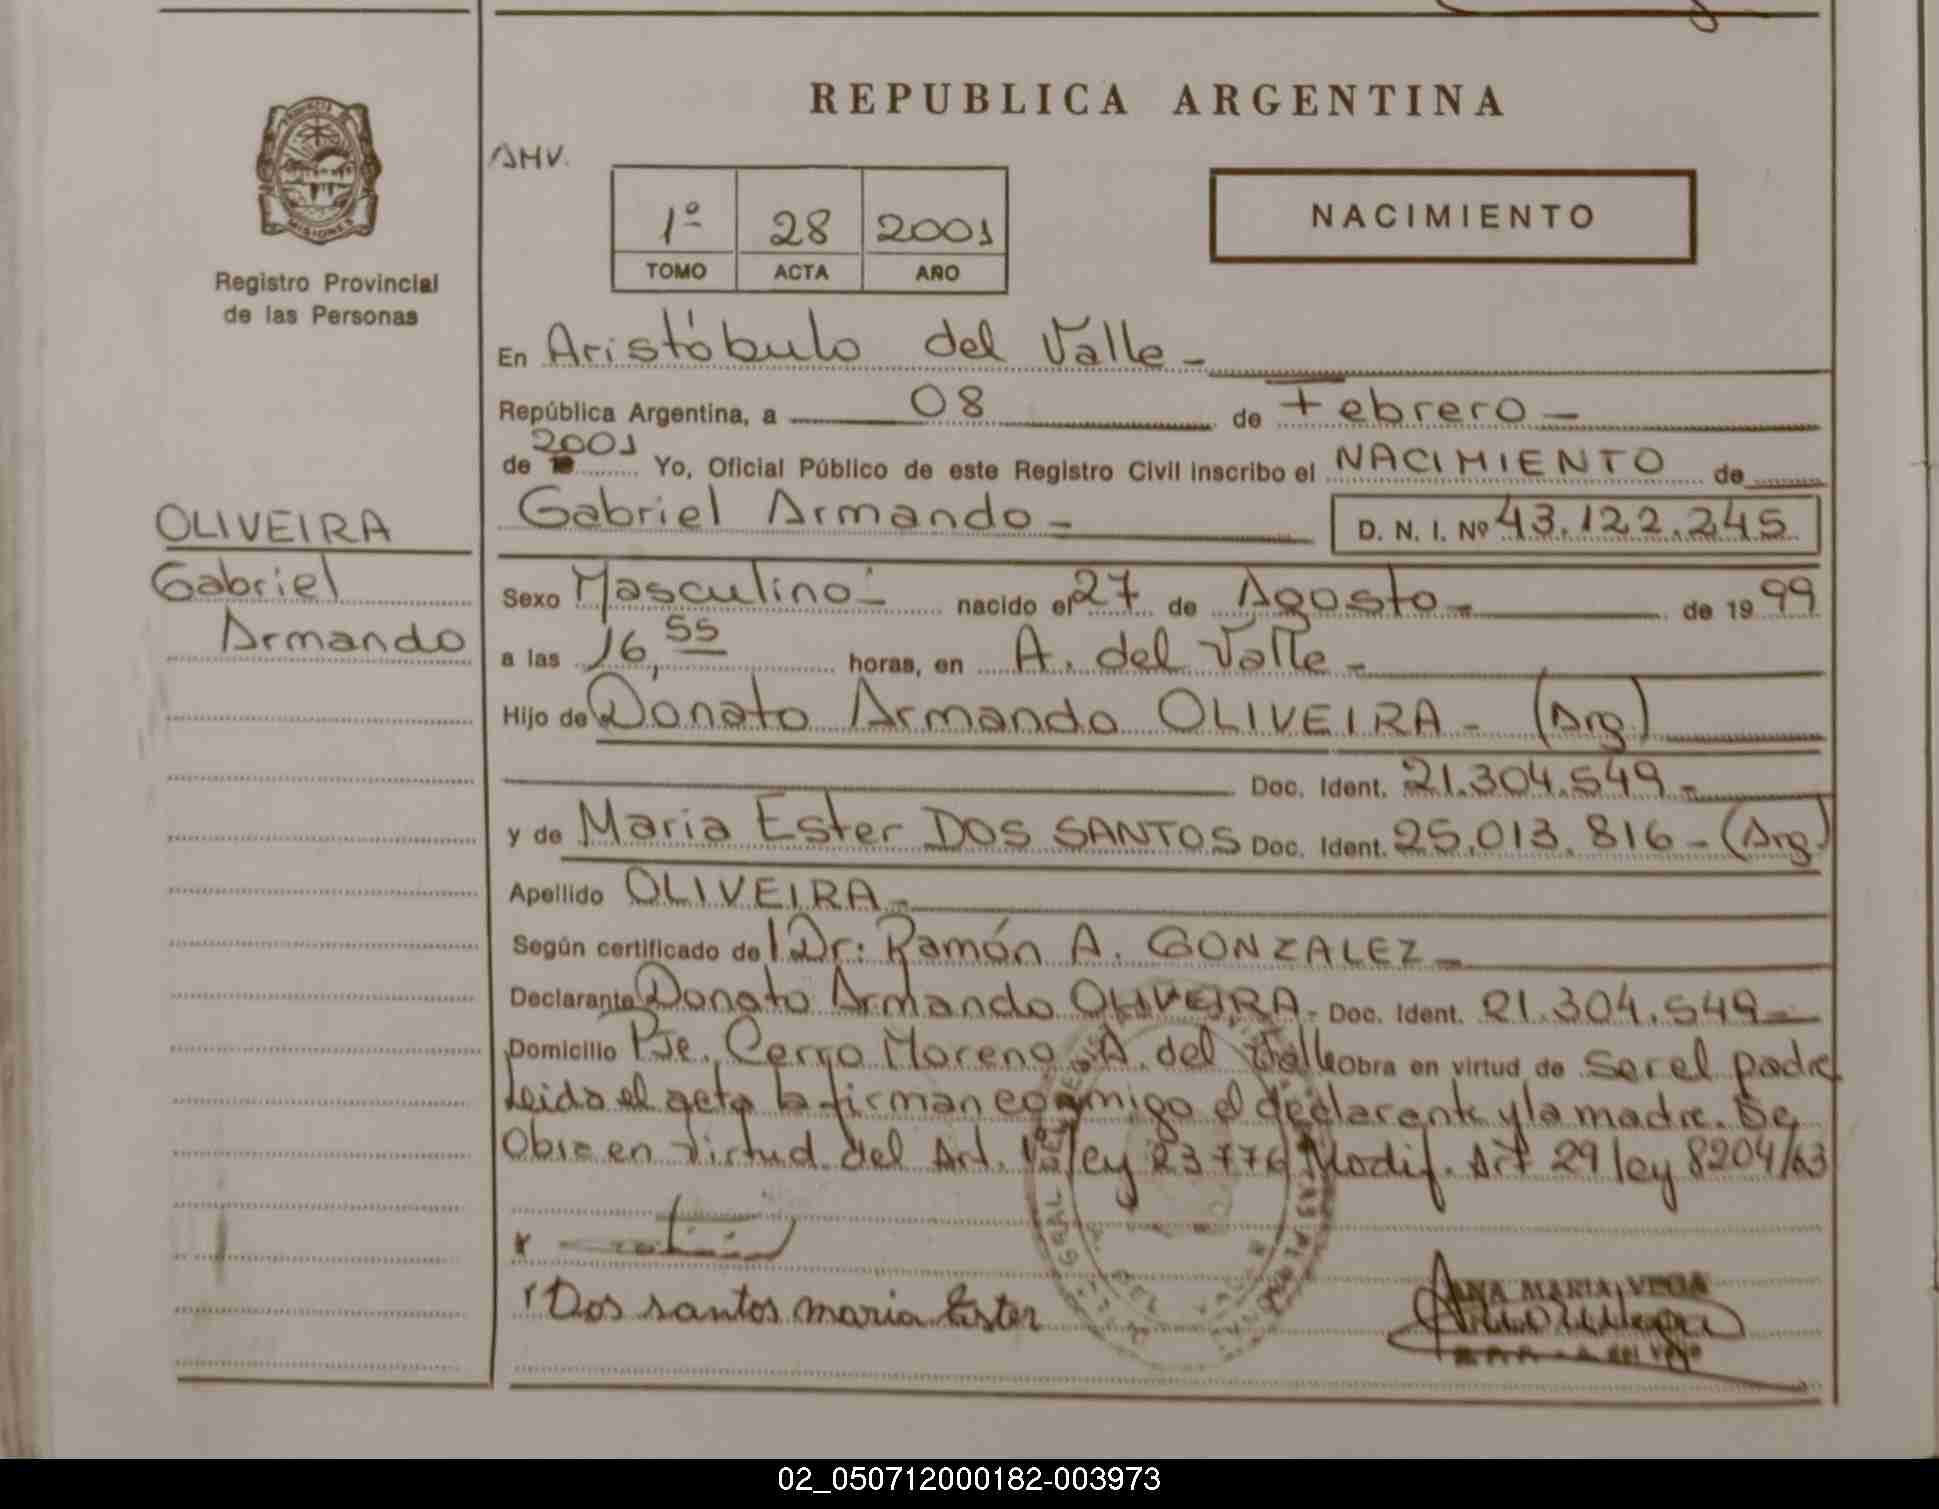 REPUBLICA ARGENTINA
PROVINCIA DE
MISIONES
Registro Provincial
de las Personas
AMV.
1º 28 2001
TOMO ACTA AÑO
NACIMIENTO
En Aristóbulo del Valle -
República Argentina, a 08 de Febrero -
de 2001 Yo, Oficial Público de este Registro Civil inscribo el NACIMIENTO de
Gabriel Armando - D. N. I. Nº 43.122.245
OLIVEIRA
Gabriel
Armando
Sexo Masculino - nacido el 27 de Agosto - de 19 99
a las 16,55 horas, en A. del Valle -
Hijo de Donato Armando OLIVEIRA - (Arg)
Doc. Ident. 21.304.549 -
y de Maria Ester DOS SANTOS Doc. Ident. 25.013.816 - (Arg)
Apellido OLIVEIRA -
Según certificado de Dr: Ramón A. GONZALEZ -
Declarante Donato Armando OLIVEIRA - Doc. Ident. 21.304.549 -
Domicilio Pje. Cerro Moreno A. del Valle Obra en virtud de ser el padre
Leida el acta la firman conmigo el declarante y la madre. Se
Obra en virtud del Art. 1º ley 23776 Modif. Art 29 ley 8204/63
Dos santos maria Ester
ANA MARIA VEGA
A. DEL VALLE
02_050712000182-003973